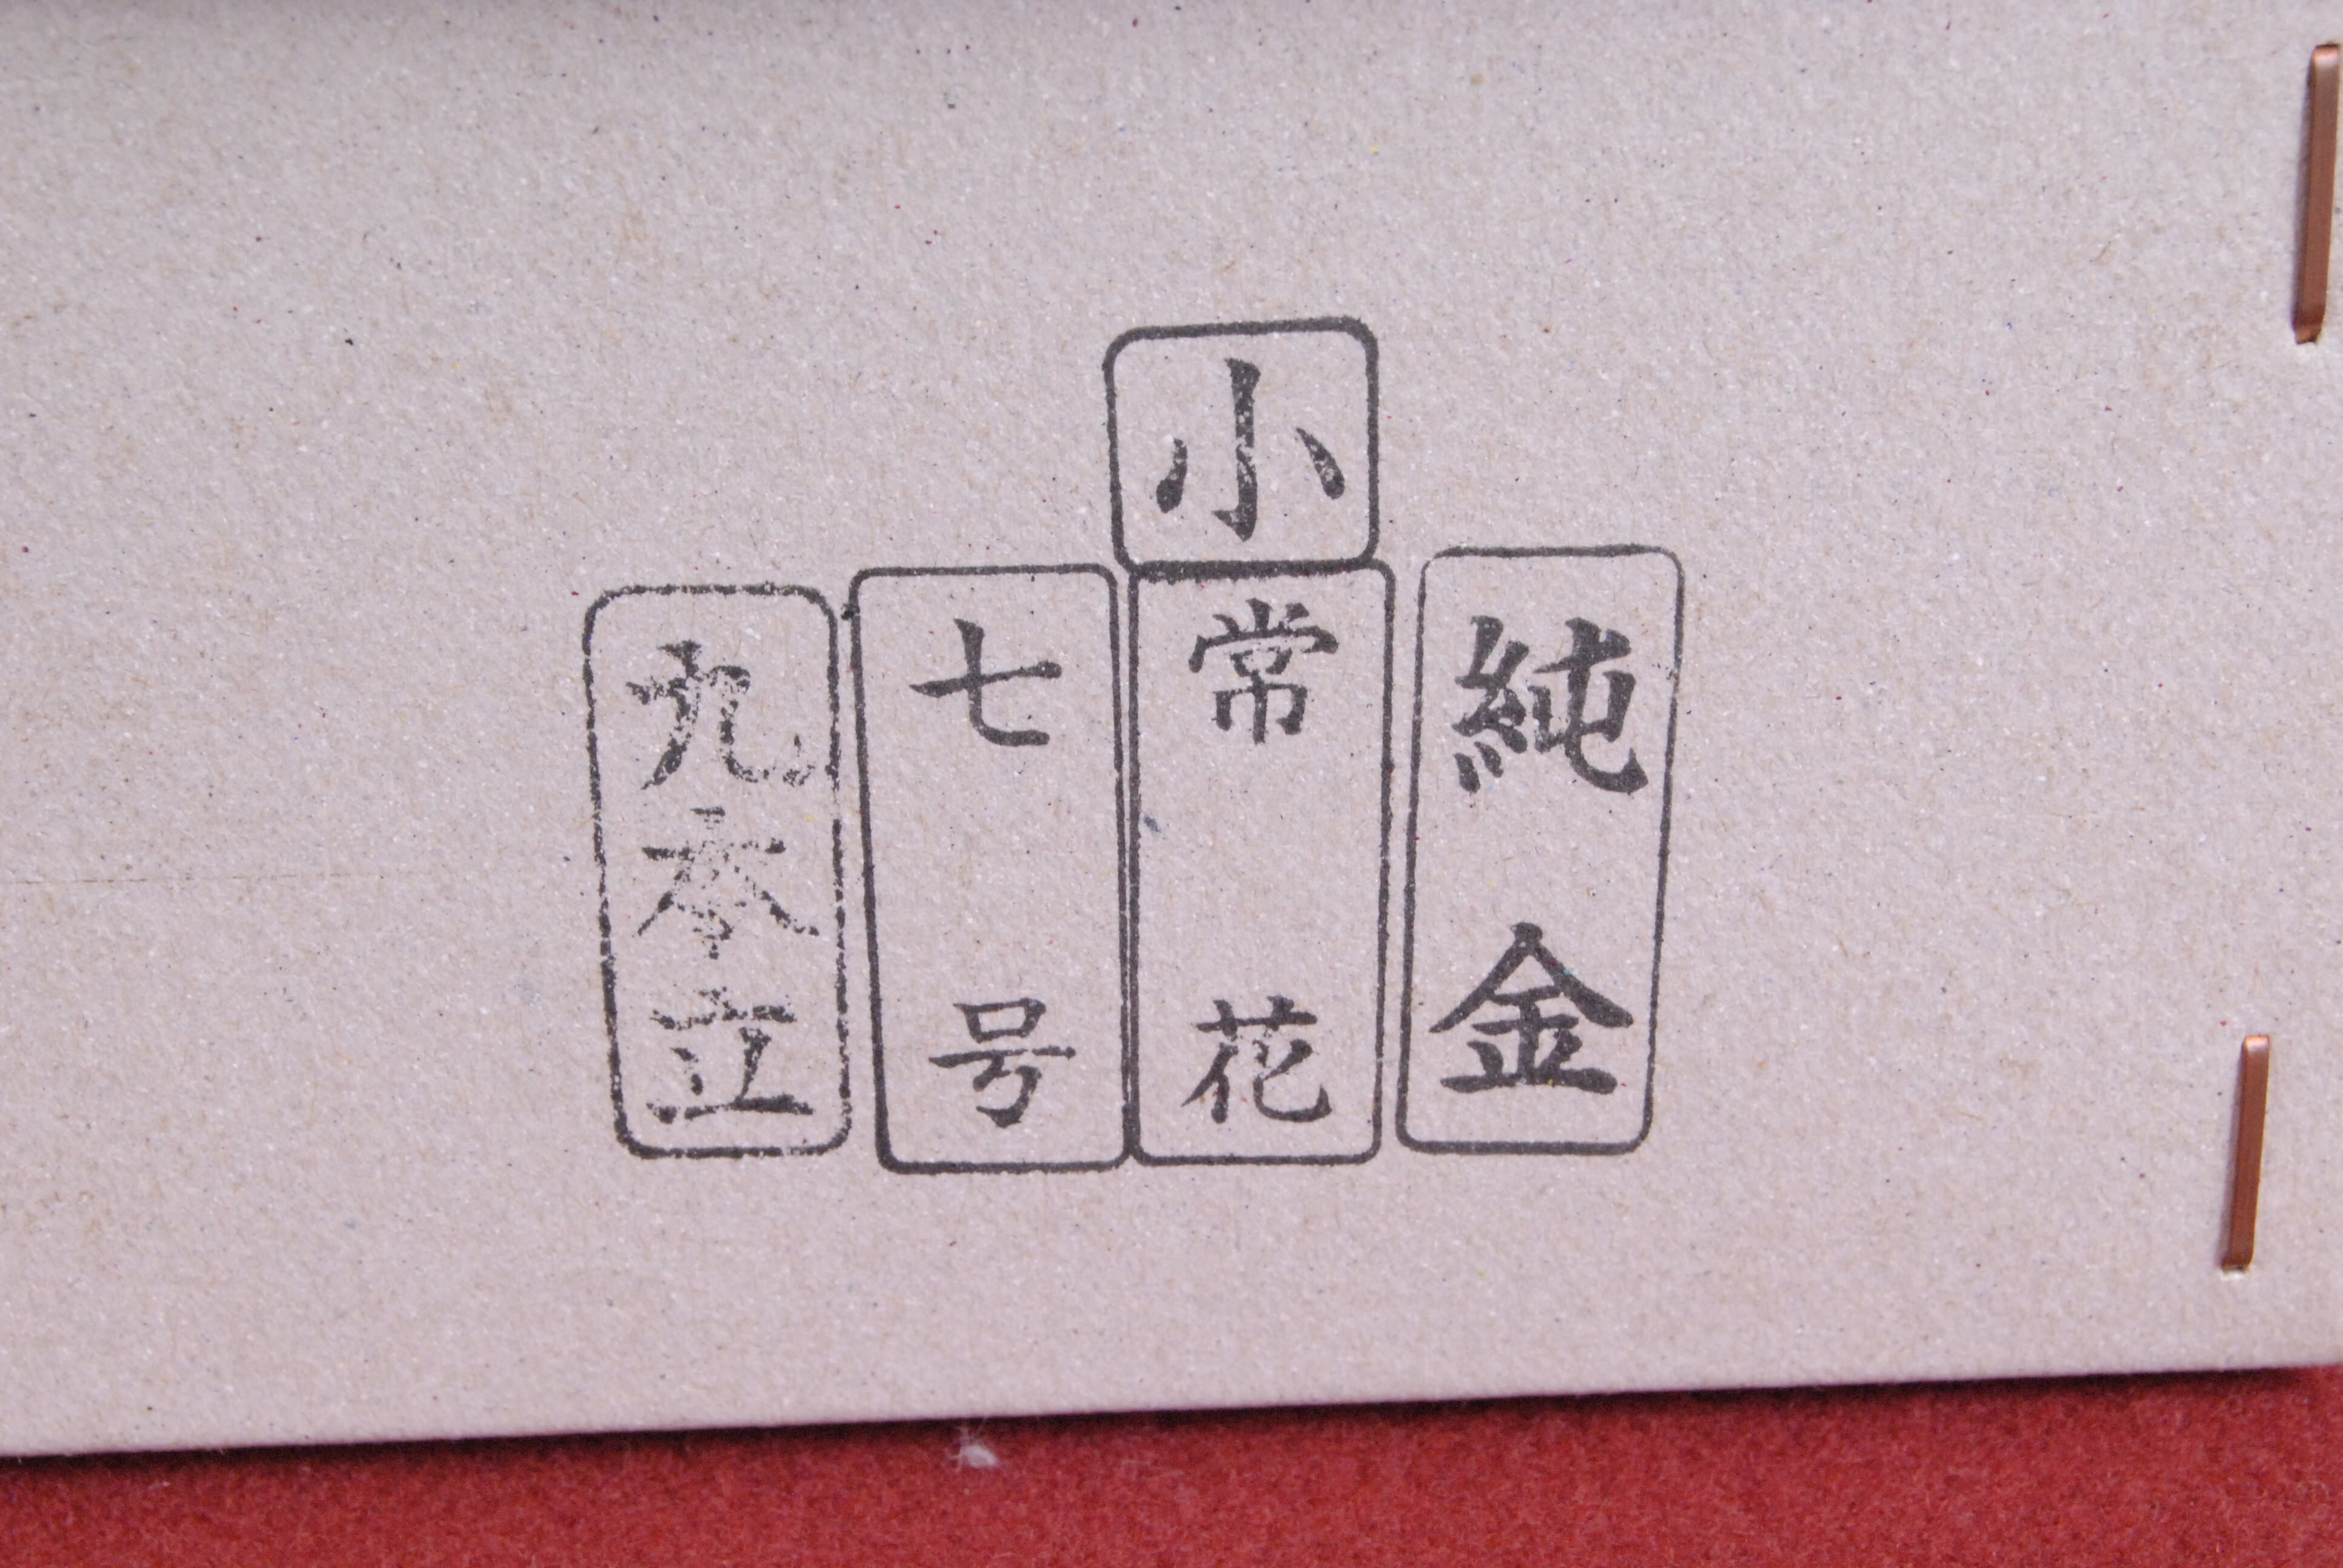 純金
小
常花
七号
九本立